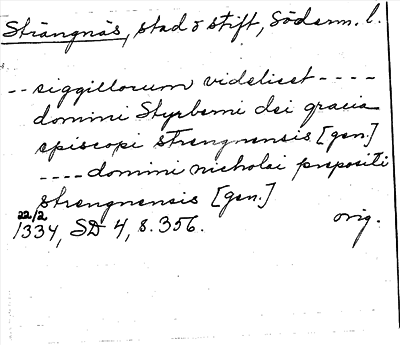 Strängnäs, stad o stift, Söderm. l.
-- siggillorum videlicet ----
domini Styrberni dei gracia
episcopi strengnensis [gen.]
---- domini nicholai prepositi
strengnensis [gen.]
22/2
1334, SD 4, s. 356. orig.